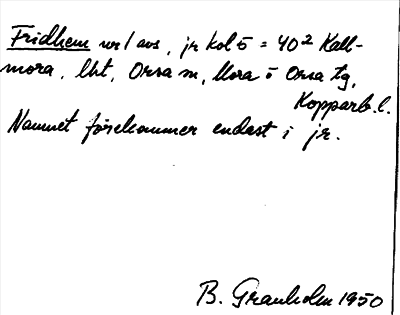 Fridhem ur/avs, jr kol 5 = 40² Kall-
mora, lht, Orsa sn, Mora o Orsa tg,
Kopparb. l.
Namnet förekommer endast i jr.
B. Granholm 1950